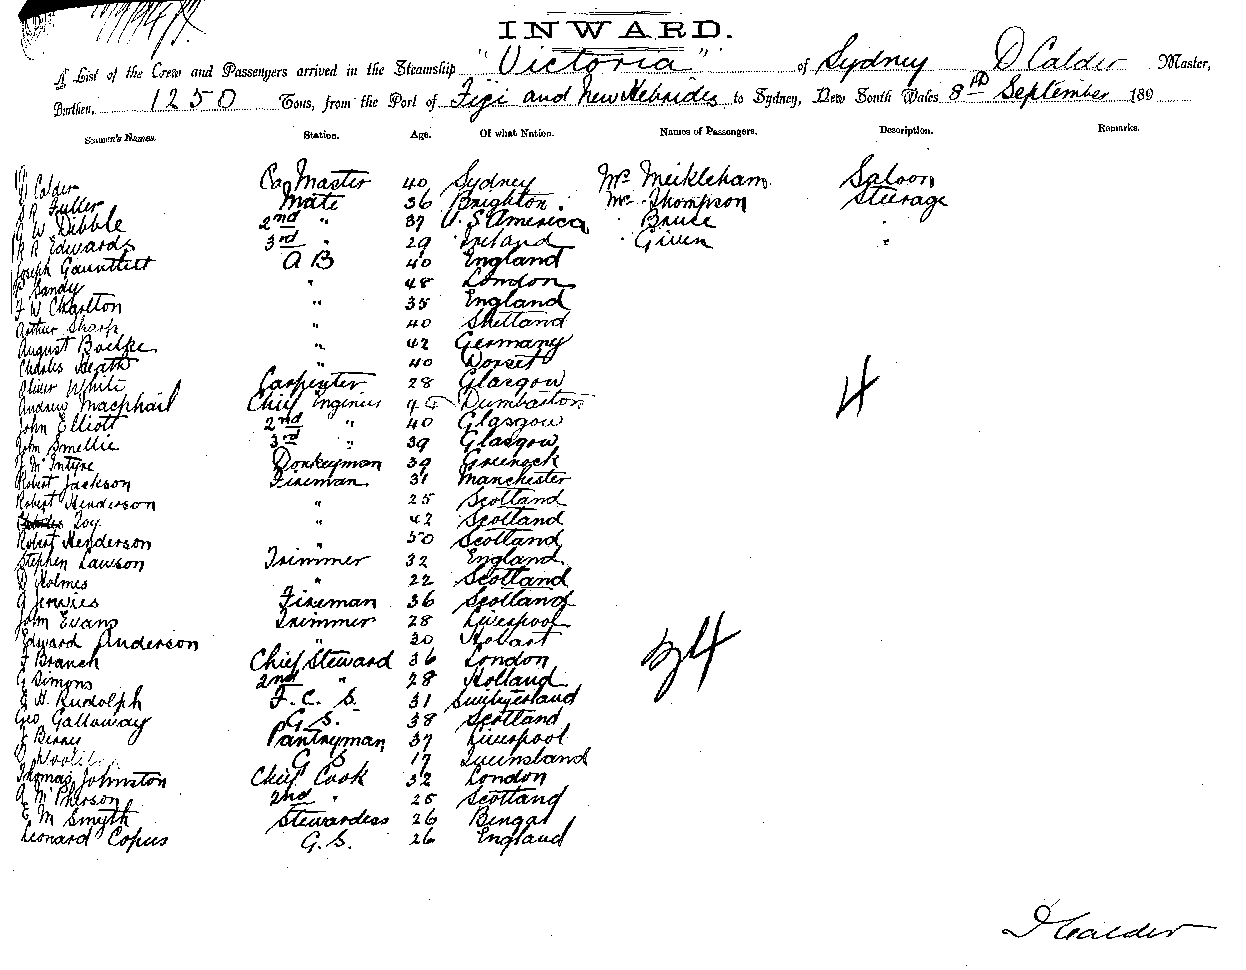 INWARD.
A List of the Crew and Passengers arrived in the Steamship "Victoria" of Sydney D Calder Master,
Burthen, 1250 Tons, from the Port of Figi and New Hebrides to Sydney, New South Wales 8th September 189
Seamen's Names. Station. Age. Of what Nation. Names of Passengers. Description. Remarks.
D Calder Master 40 Sydney Mrs Meikleham Saloon
Fuller Mate 36 Brighton Mr Thompson Steerage
W Dibble 2nd " 37 U.S America " Bruce "
R Edwards 3rd " 29 Ireland " Given "
Joseph Gauntlett A B 40 England
Sandy " 48 London
F W Charlton " 35 England
Arthur Sharp " 40 Shetland
August Boelke " 42 Germany
Charles Heath " 40 Dorset
Oliver White Carpenter 28 Glasgow
Andrew Macphail Chief Enginer Dumbarton
John Elliott 2nd " 40 Glasgow
John Smellie 3rd " 39 Glasgow
McIntyre Donkeyman 39 Greenock
Robert Jackson Fireman 31 Manchester
Robert Henderson " 25 Scotland
Toy " 42 Scotland
Robert Henderson " 50 Scotland
Stephen Lawson Trimmer 32 England
D Holmes " 22 Scotland
Fireman 36 Scotland
John Evans Trimmer 28 Liverpool
Edward Anderson " 30 Hobart
F Branch Chief Steward 36 London
Simons 2nd " 28 Holland
H. Rudolph F. C. S. 31 Switzerland
Geo Galloway G. S. 38 Scotland
Pantryman 37 Liverpool
G S 17 Queensland
Thomas Johnston Chief Cook 32 London
A McPherson 2nd " 25 Scotland
E M Smyth Stewardess 26 Bengal
Leonard Copus G. S. 26 England
4
34
D Calder